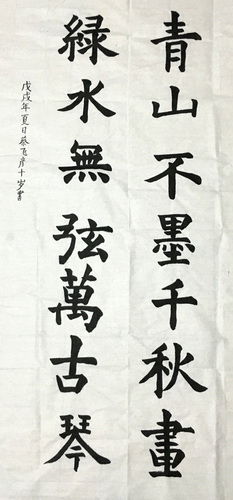 青山不墨千秋畫
綠水無弦萬古琴
戊戌年夏日蔡飞彦十岁書